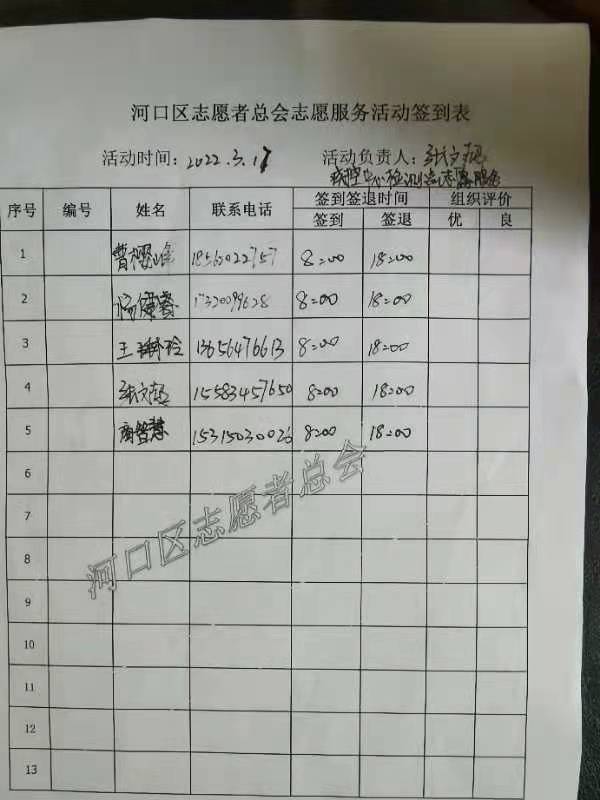 河口区志愿者总会志愿服务活动签到表
活动时间：2022.3.17 活动负责人：张文超
疾控中心检测 志愿服务
序号 编号 姓名 联系电话 签到签退时间 组织评价
签到 签退 优 良
1 曹樱峰 18 8:00 18:00
2 杨健春 8:00 18:00
3 王 玲 13656476613 8:00 18:00
4 张文超 15583457650 8:00 18:00
5 商智慧 15315030026 8:00 18:00
6
7
8
9
10
11
12
13
河口区志愿者总会